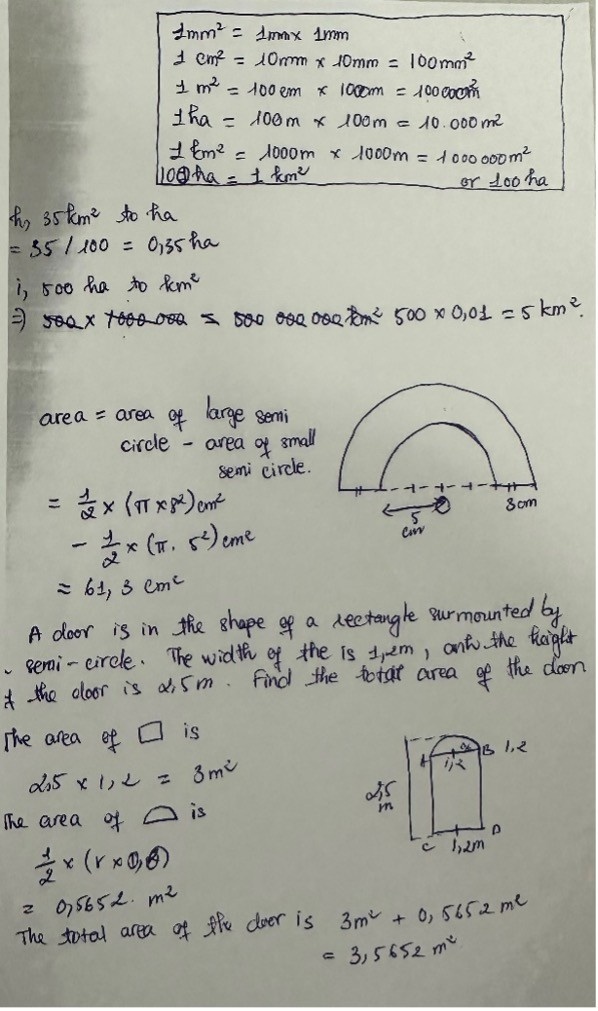 1mm² = 1mm x 1mm
1 cm² = 10mm x 10mm = 100mm²
1 m² = 100cm x 100cm = 10000cm²
1ha = 100m x 100m = 10.000m²
1 km² = 1000m x 1000m = 1000000m²
100ha = 1 km² or 100 ha
h, 35km² to ha
= 35 / 100 = 0,35 ha
i, 500 ha to km²
=> 500 x 1000 000 = 500 000 000 km² 500 x 0,01 = 5 km².
area = area of large semi
circle - area of small
semi circle.
= 1/2 x (π x 8²) cm²
- 1/2 x (π. 5²) cm²
≈ 61,3 cm²
5
cm
3cm
A door is in the shape of a rectangle surmounted by
semi-circle. The width of the is 1,2m, the height
the door is 2,5m. Find the total area of the door
The area of □ is
2,5 x 1,2 = 3m²
The area of is
1/2 x
= 0,5652. m²
The total area of the door is 3m² + 0,5652 m²
= 3,5652 m²
A
B 1,2
1,2
2,5
m
C 1,2m D